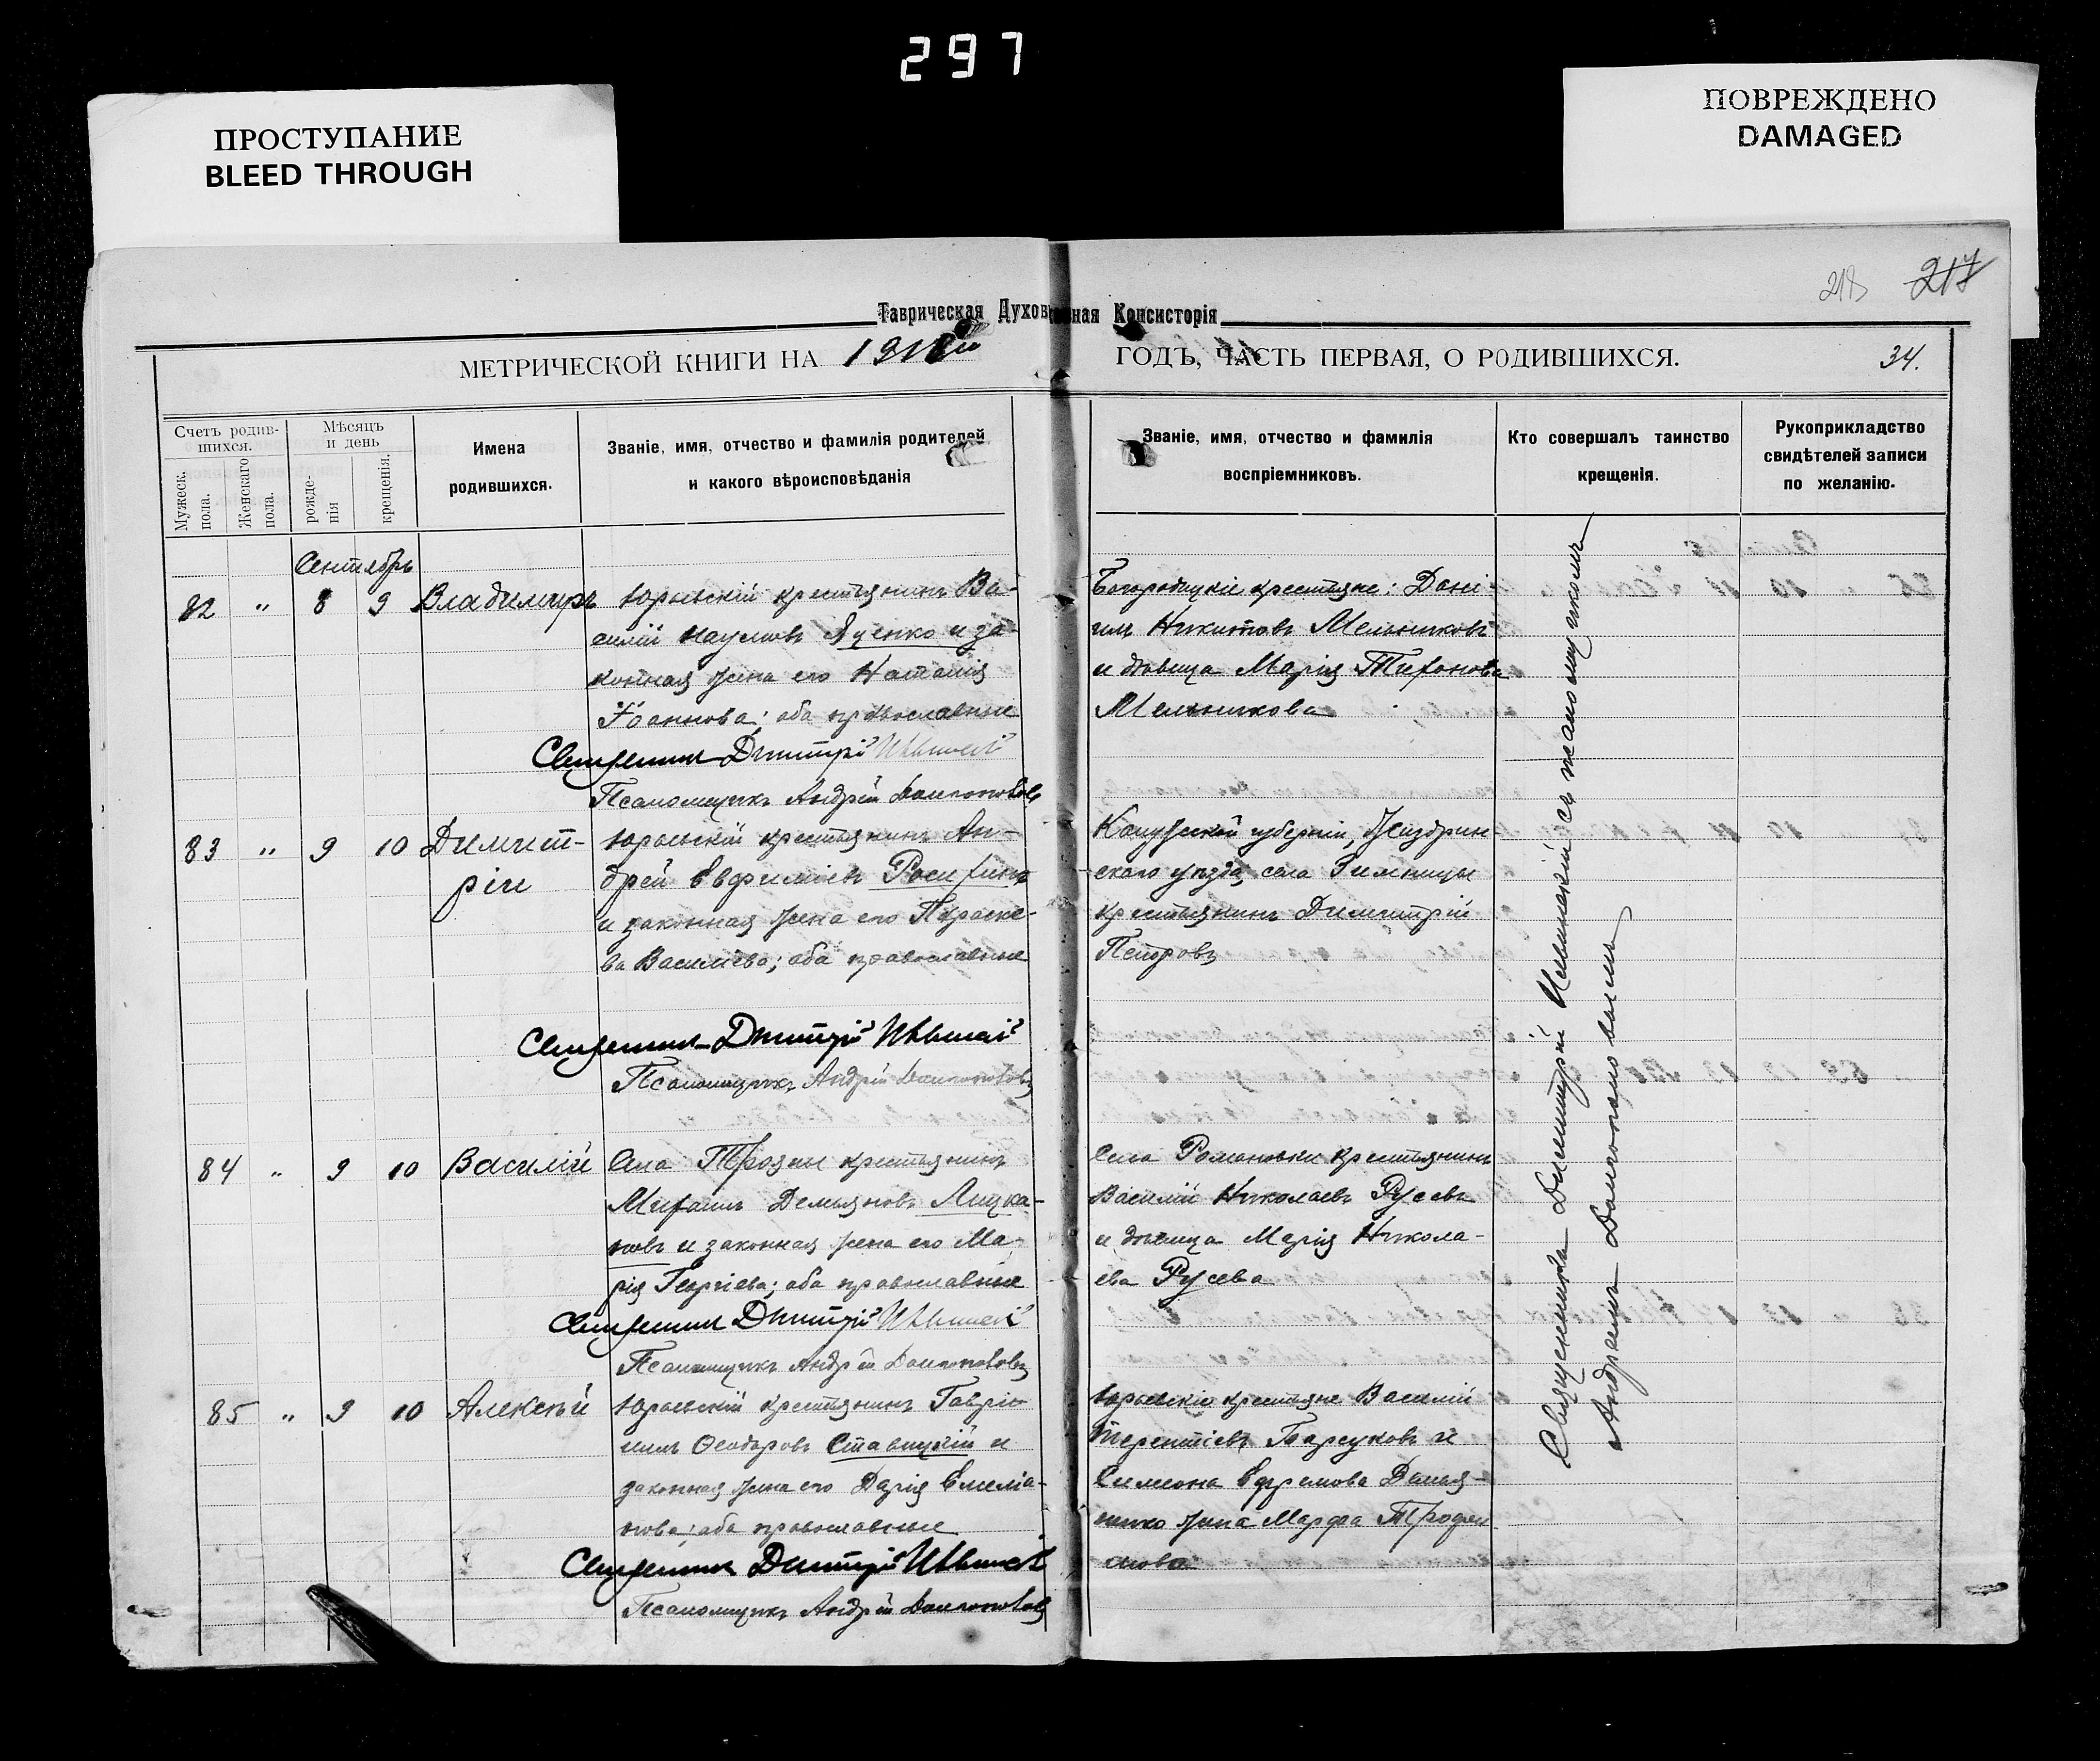 297
ПРОСТУПАНИЕ
BLEED THROUGH
ПОВРЕЖДЕНО
DAMAGED
218 217
Таврическая Духовная Консисторія
МЕТРИЧЕСКОЙ КНИГИ НА ГОДЪ, ЧАСТЬ ПЕРВАЯ, О РОДИВШИХСЯ.
34.
Счетъ родив-
шихся.
Мужеск.
пола.
Женскаго
пола.
Мѣсяцъ
и день
рожде-
нія
крещенія.
Имена
родившихся.
Званіе, имя, отчество и фамилія родителей
и какого вѣроисповѣданія
Званіе, имя, отчество и фамилія
воспріемниковъ.
Кто совершалъ таинство
крещенія.
Рукоприкладство
свидѣтелей записи
по желанію.
Сентябрь
82 " 8 9 Владимиръ Юрьевскій крестьянинъ Ва-
силій Наумовъ Яценко и за-
конная жена его Наталія
Іоаннова; оба православные
Священникъ Дмитрій
Псаломщикъ Андрей
Богородицкіе крестьяне: Дані-
илъ Никитовъ Мельниковъ
и дѣвица Марія Тихонова
Мельникова
83 " 9 10 Димит-
рій
Юрьевскій крестьянинъ Ан-
дрей Евфиміевъ
и законная жена его Параске-
ва Василіева; оба православные
Священникъ Дмитрій
Псаломщикъ Андрей
Калужской губерніи, Жиздрин-
скаго уѣзда, села Зимницы
крестьянинъ Димитрій
Петровъ
84 " 9 10 Василій Села Трояны крестьянинъ
Михаилъ Демьяновъ Лицка-
новъ и законная жена его Ма-
рія Георгіева; оба православные
Священникъ Дмитрій
Псаломщикъ Андрей
Села Романовки крестьянинъ
Василій Николаевъ Русевъ
и дѣвица Марія Никола-
ева Русева
85 " 9 10 Алексѣй Юрьевскій крестьянинъ Гаврі-
илъ Ѳеодоровъ Ставицкій и
законная жена его Дарія Емеліа-
нова; оба православные
Священникъ Дмитрій
Псаломщикъ Андрей
Юрьевскіе крестьяне Василій
Терентіевъ Барсуковъ и
Симеона Ефремова
жена Марфа Трофи
мова
Священникъ Димитрій съ псаломщикомъ
Андреемъ